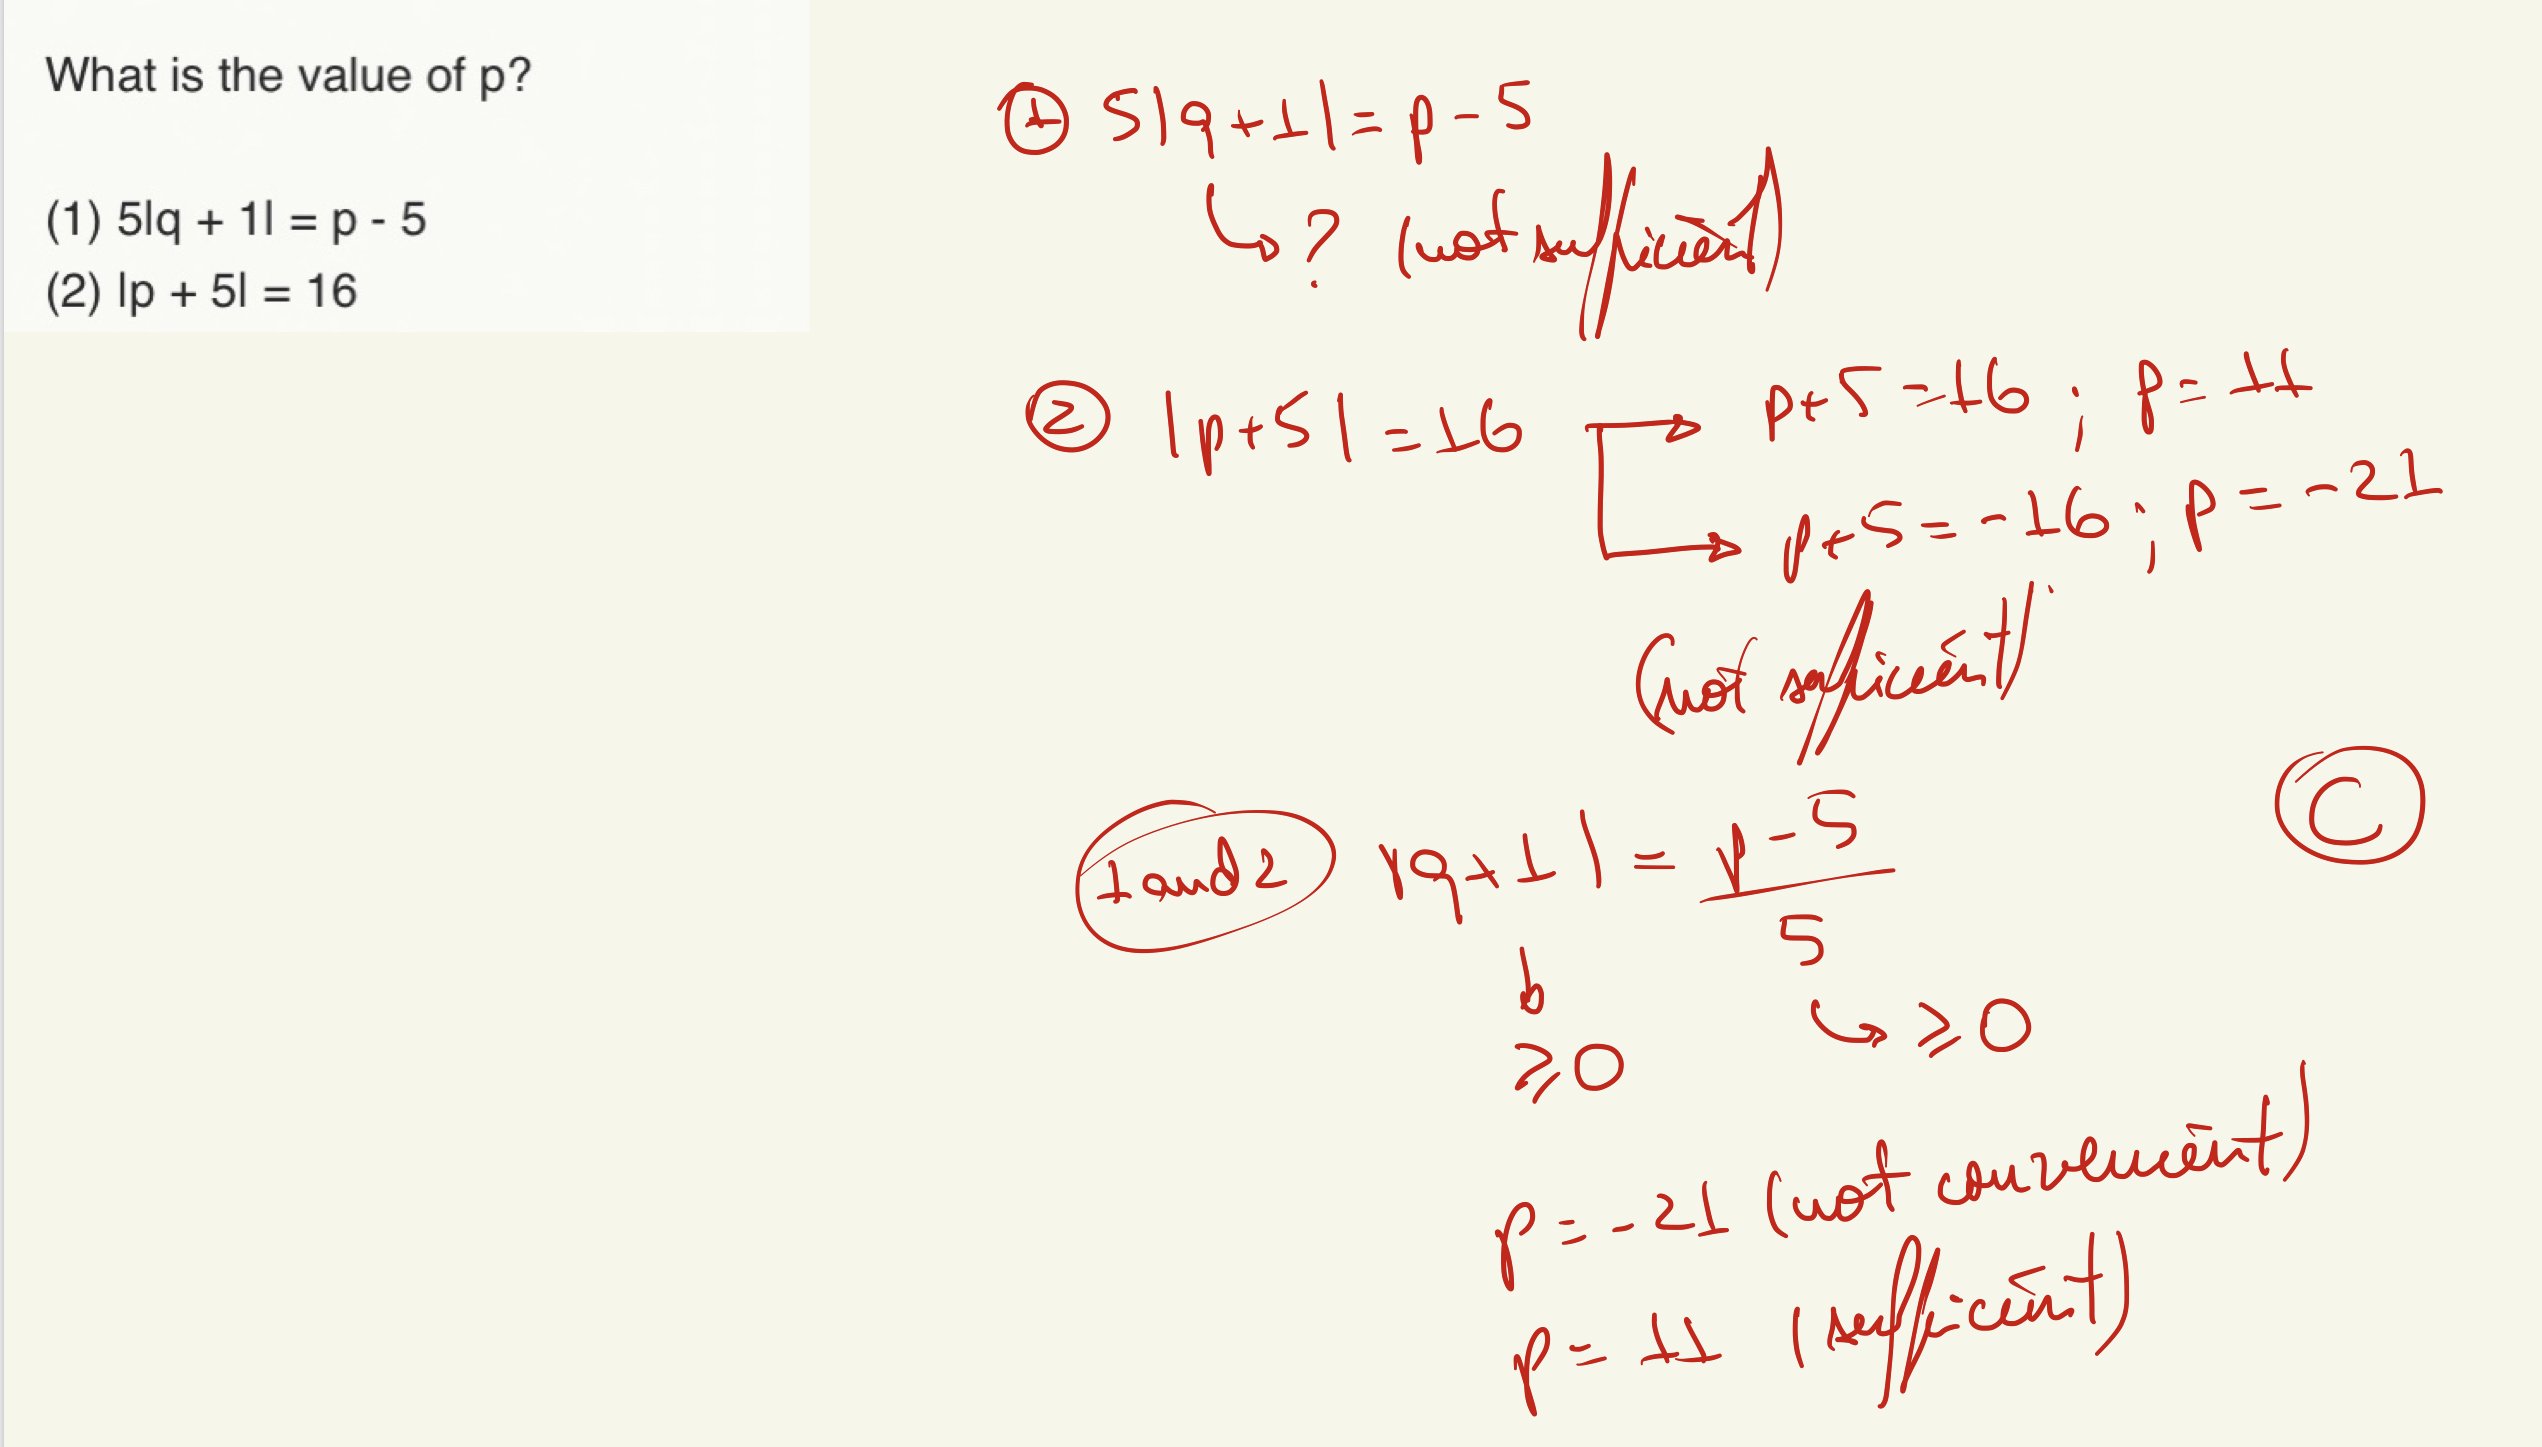 What is the value of p?
(1) 5lq + 1l = p - 5
(2) lp + 5l = 16
① 5|q+1| = p - 5
? (not sufficient)
② |p+5| = 16
p+5 = 16 ; p = 11
p+5 = -16 ; p = -21
(not sufficient)
1 and 2 |q+1| = p - 5
5
≥ 0
≥ 0
C
p = -21 (not convenient)
p = 11 (sufficient)